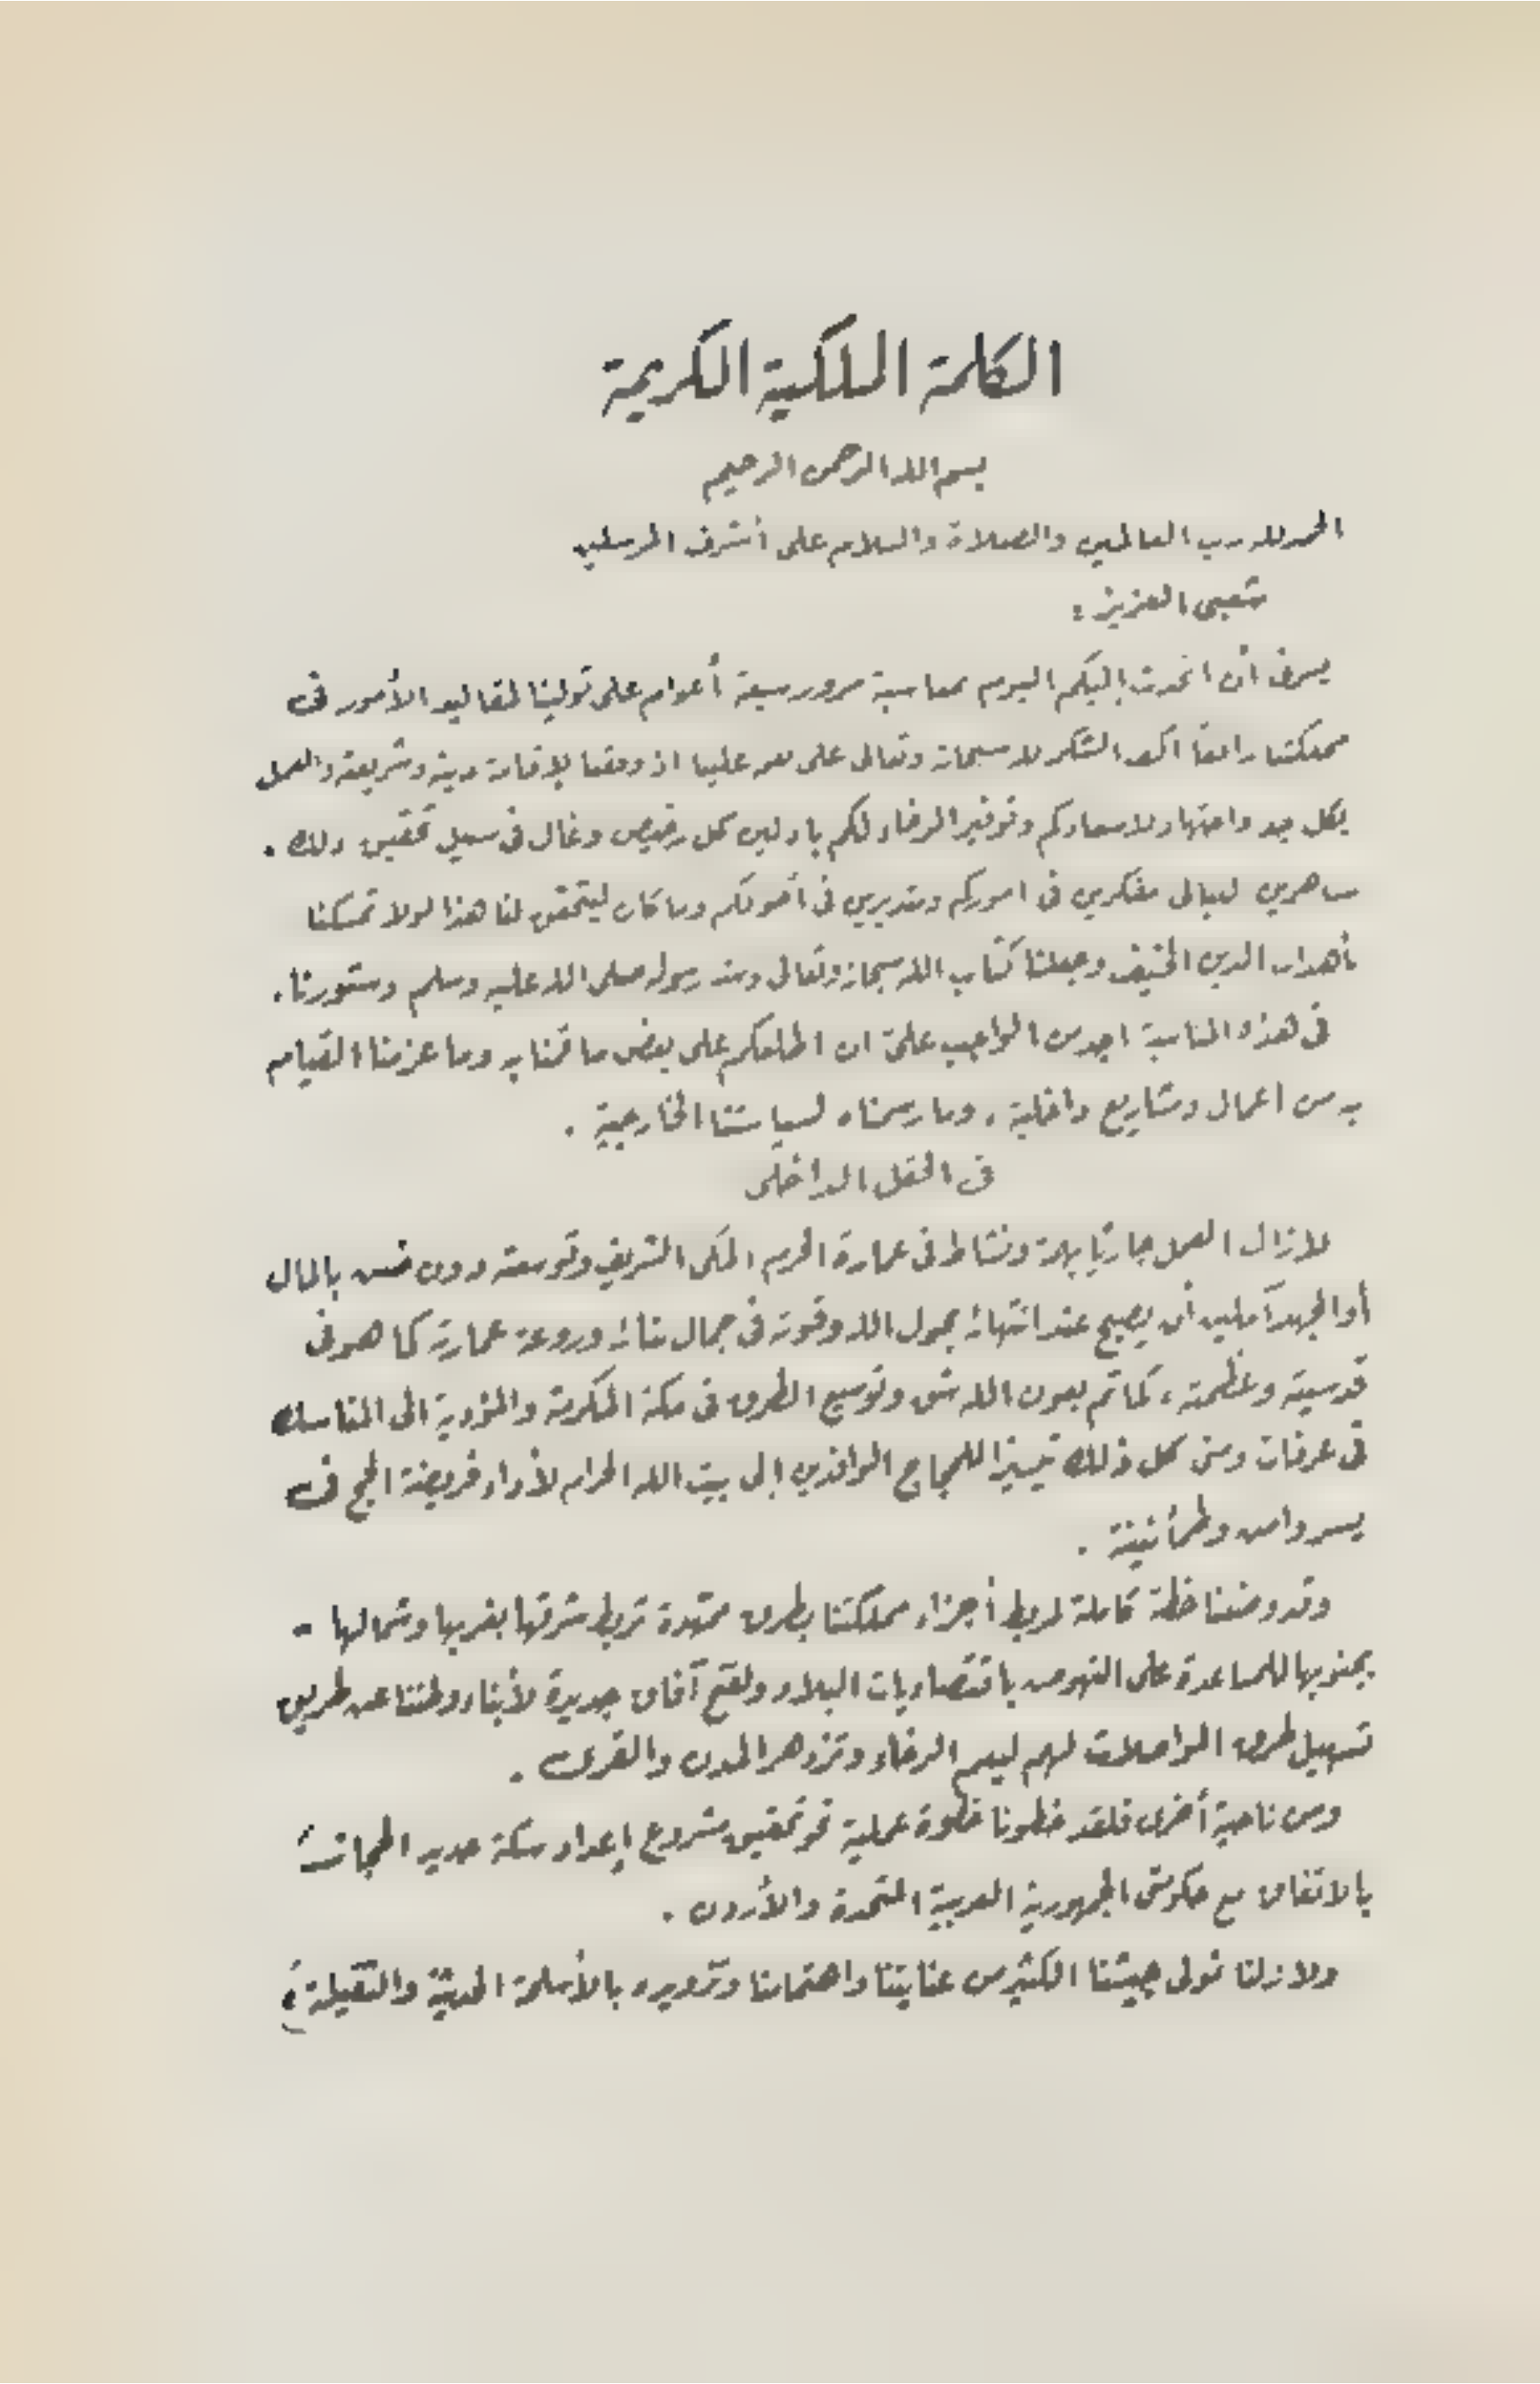 الكلمة الملكية الكريمة
بسم الله الرحمن الرحيم
الحمد لله رب العالمين والصلاة والسلام على أشرف المرسلين
شعبي العزيز :
يسرني أن اتحدث إليكم اليوم بمناسبة مرور سبعة أعوام على تولينا لمقاليد الأمور في
مملكتنا رافعا اكف الشكر لله سبحانه وتعالى على نعمه علينا اذ وفقنا لإقامة دينه وشريعته والعمل
بكل جد واجتهاد لاسعادكم وتوفير الرخاء لكم باذلين كل رخيص وغال في سبيل تحقيق ذلك .
ساهرين ليالى مفكرين في اموركم ومتدبرين في أحوالكم وما كان ليتحقق لنا هذا لولا تمسكنا
بأهداب الدين الحنيف وجعلنا كتاب الله سبحانه وتعالى وسنة رسوله صلى الله عليه وسلم دستورنا .
في هذه المناسبة اجد من الواجب علىّ ان اطلعكم على بعض ما قمنا به وما عزمنا القيام
به من اعمال ومشاريع داخلية ، وما رسمناه لسياستنا الخارجية .
في الحقل الداخلى
لازال العمل جاريًا بهمة ونشاط في عمارة الحرم المكى الشريف وتوسعته دون بالمال
أو الجهد آملين أن يصبح عند انتهائه بحول الله وقوته في جمال بنائه وروعة عمارته كما هو في
قدسيته وعظمته ، كما تم بعون الله شق وتوسيع الطرق في مكة المكرمة والمؤدية الى المناسك
في عرفات ومنى كل ذلك تيسيرا للحجاج الوافدين إلى بيت الله الحرام لأداء فريضة الحج في
يسر وامن وطمأنينة .
وقد وضعنا خطة كاملة لربط أجزاء مملكتنا بطرق ممتدة تربط شرقها بغربها وشمالها -
بجنوبها للمساعدة على النهوض باقتصاديات البلاد ولفتح آفاق جديدة لأبناء وطننا عن طريق
تسهيل طرق المواصلات لهم ليعم الرخاء وتزدهر المدن والقرى .
ومن ناحية أخرى فلقد خطونا خطوة عملية نحو تحقيق مشروع إعداد سكة حديد الحجاز
بالاتفاق مع حكومتى الجمهورية العربية المتحدة والأردن .
ولازلنا نولى جيشنا الكثير من عنايتنا واهتمامنا وتزويده بالأسلحة الحديثة والثقيلة